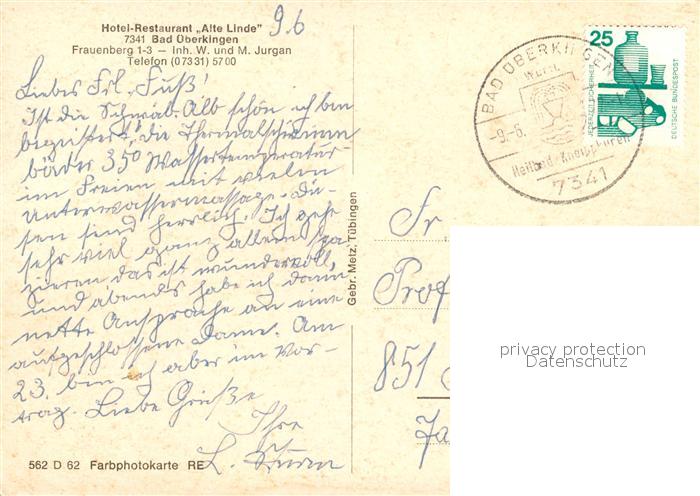 Hotel-Restaurant „Alte Linde"
7341 Bad Überkingen
Frauenberg 1-3 — Inh. W. und M. Jurgan
Telefon (07331) 5700
9.6
Liebes Frl. Füß!
Ist die Schwäb. Alb schön ich bin
begeistert, die Thermalschwimm
bäder 35° Wassertemperatur
im Freien mit vielen
Unterwassermassage-Dü-
sen sind herrlich. Ich gehe
sehr viel ganz allein spa
zieren das ist wundervoll,
und abends habe ich dann
nette Ansprache an eine
aufgeschlossene Dame. Am
23. bin ich aber im Vor-
trag. Liebe Grüße
Ihre
L. Sturm
562 D 62 Farbphotokarte RE
Gebr. Metz, Tübingen
BAD ÜBERKINGEN
-9.6.
Heilbad-Kneippkuren
7341
25
JEDERZEIT SICHERHEIT
DEUTSCHE BUNDESPOST
Fr
Prof
851
privacy protection
Datenschutz